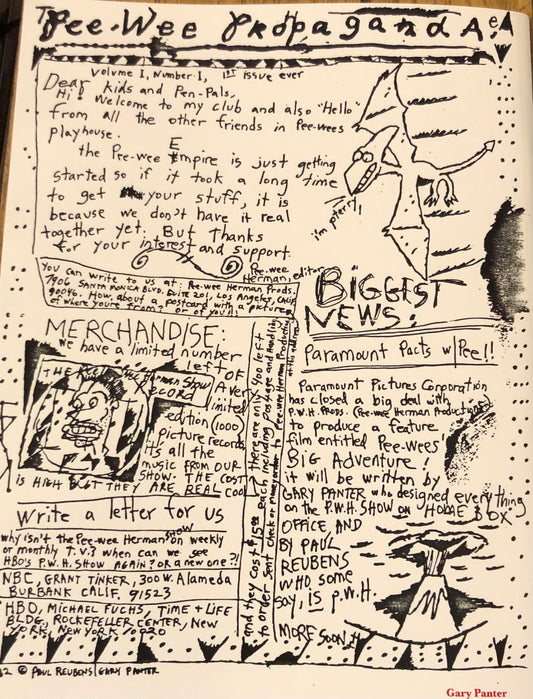 The
Pee-Wee Propaganda!
Volume 1, Number 1, 1ST issue ever
Dear kids and Pen-Pals,
Hi! Welcome to my club and also "Hello"
from all the other friends in Pee-wees
playhouse.
the Pee-wee Empire is just getting
started so if it took a long time
to get your stuff, it is
because we don't have it real
together yet. But Thanks
for your interest and support.
Pee-wee
Herman, editor
i'm pterry!
You can write to us at: Pee-wee Herman Prods.
7906 SANTA MONICA BLVD. SUITE 201, LOS ANGELES, CALIF.
90046. How about a postcard with a picture
of where youre from? or of you!!
BIGGEST
NEWS:
Paramount Pacts w/Pee!!
Paramount Pictures Corporation
has closed a big deal with
P.W.H. PRODS. (Pee-wee Herman Productions)
to produce a feature
film entitled Pee-wees'
BIG Adventure!
it will be written by
GARY PANTER who designed everything
on the P.W.H. SHOW on HOME BOX
OFFICE AND
BY PAUL
REUBENS
WHO some
say, IS P.W.H.
MORE SOON
MERCHANDISE:
we have a limited number
left OF
A very
limited
edition (1000)
Picture records
its all the
music FROM OUR
SHOW. THE COST
IS HIGH BUT THEY ARE REAL COOL
THE PEE
Herman Show
RECORD
and they cost $15 each including postage and handling
there are only 400 left
to order send check or money order to Pee-wee Herman Productions
at this address
Write a letter for us
why isn't the Pee-wee Herman show on weekly
or monthly T.V.? when can we see
HBO'S P.W.H. SHOW AGAIN? OR a new one?!
NBC, GRANT TINKER, 300 W. Alameda
BURBANK CALIF. 91523
HBO, MICHAEL FUCHS, TIME + LIFE
BLDG, ROCKEFELLER CENTER, NEW
YORK, NEW YORK 10020
© PAUL REUBENS/GARY PANTER
Gary Panter